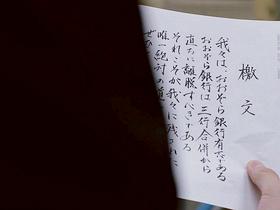 檄文
我々は、おおぞら銀行有志である
おおぞら銀行は三行合併から
直ちに離脱すべきである
それこそが我々に残された
唯一絶対の道